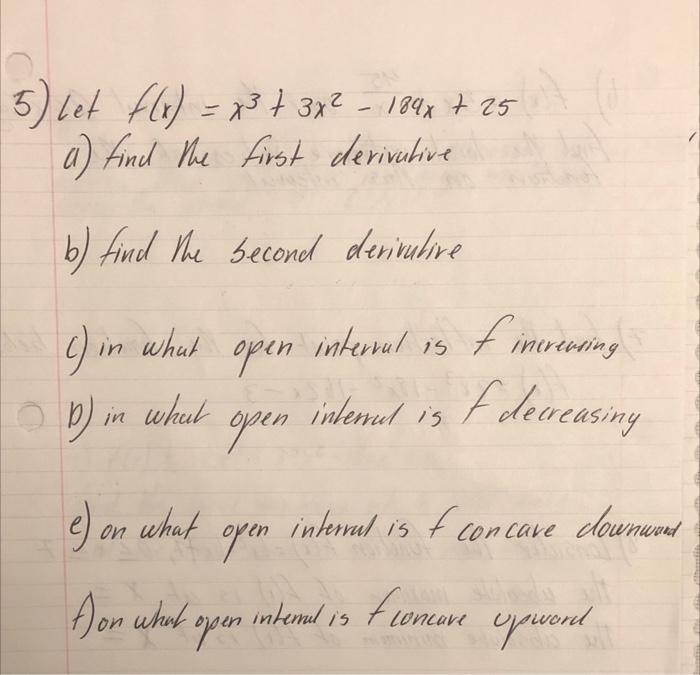 5) Let f(x) = x³ + 3x² - 189x + 25
a) find the first derivative
b) find the second derivative
c) in what open interval is f increasing
D) in what open interval is f decreasing
e) on what open interval is f concave downward
f) on what open interval is f concave upward